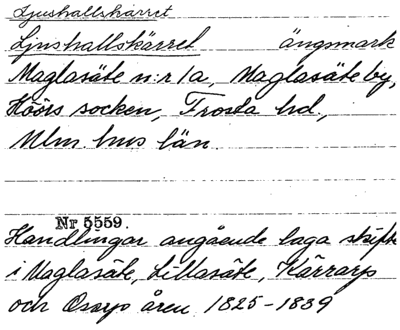 Ljushallskärret
Ljushallskärret ängsmark
Maglasäte n:r 1a, Maglasäte by,
Höörs socken, Frosta hd.,
Mlm. hus län.
Nr 5559.
Handlingar angående laga skifte
i Maglasäte, Lillasäte, Kärrarp
och Osarp åren 1825-1839